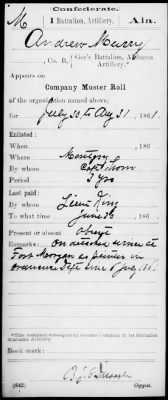 Confederate.
M 1 Battalion, Artillery. Ala.
Andrew
Co. B, Gee's Battalion, Alabama Artillery.*
Appears on
Company Muster Roll
of the organization named above,
for July & to Aug 31, 186 .
Enlisted:
When , 186 .
Where Montgy
By whom Capt
Period 3 Yrs
Last paid:
By whom Lieut King
To what time June 30, 186 .
Present or absent absent
Remarks: On detached service at
Fort Morgan as in
Ordnance Dept since July 1862
*This company subsequently became Company B, 1st Battalion, Alabama Artillery.
Book mark:
(642) Copyist.